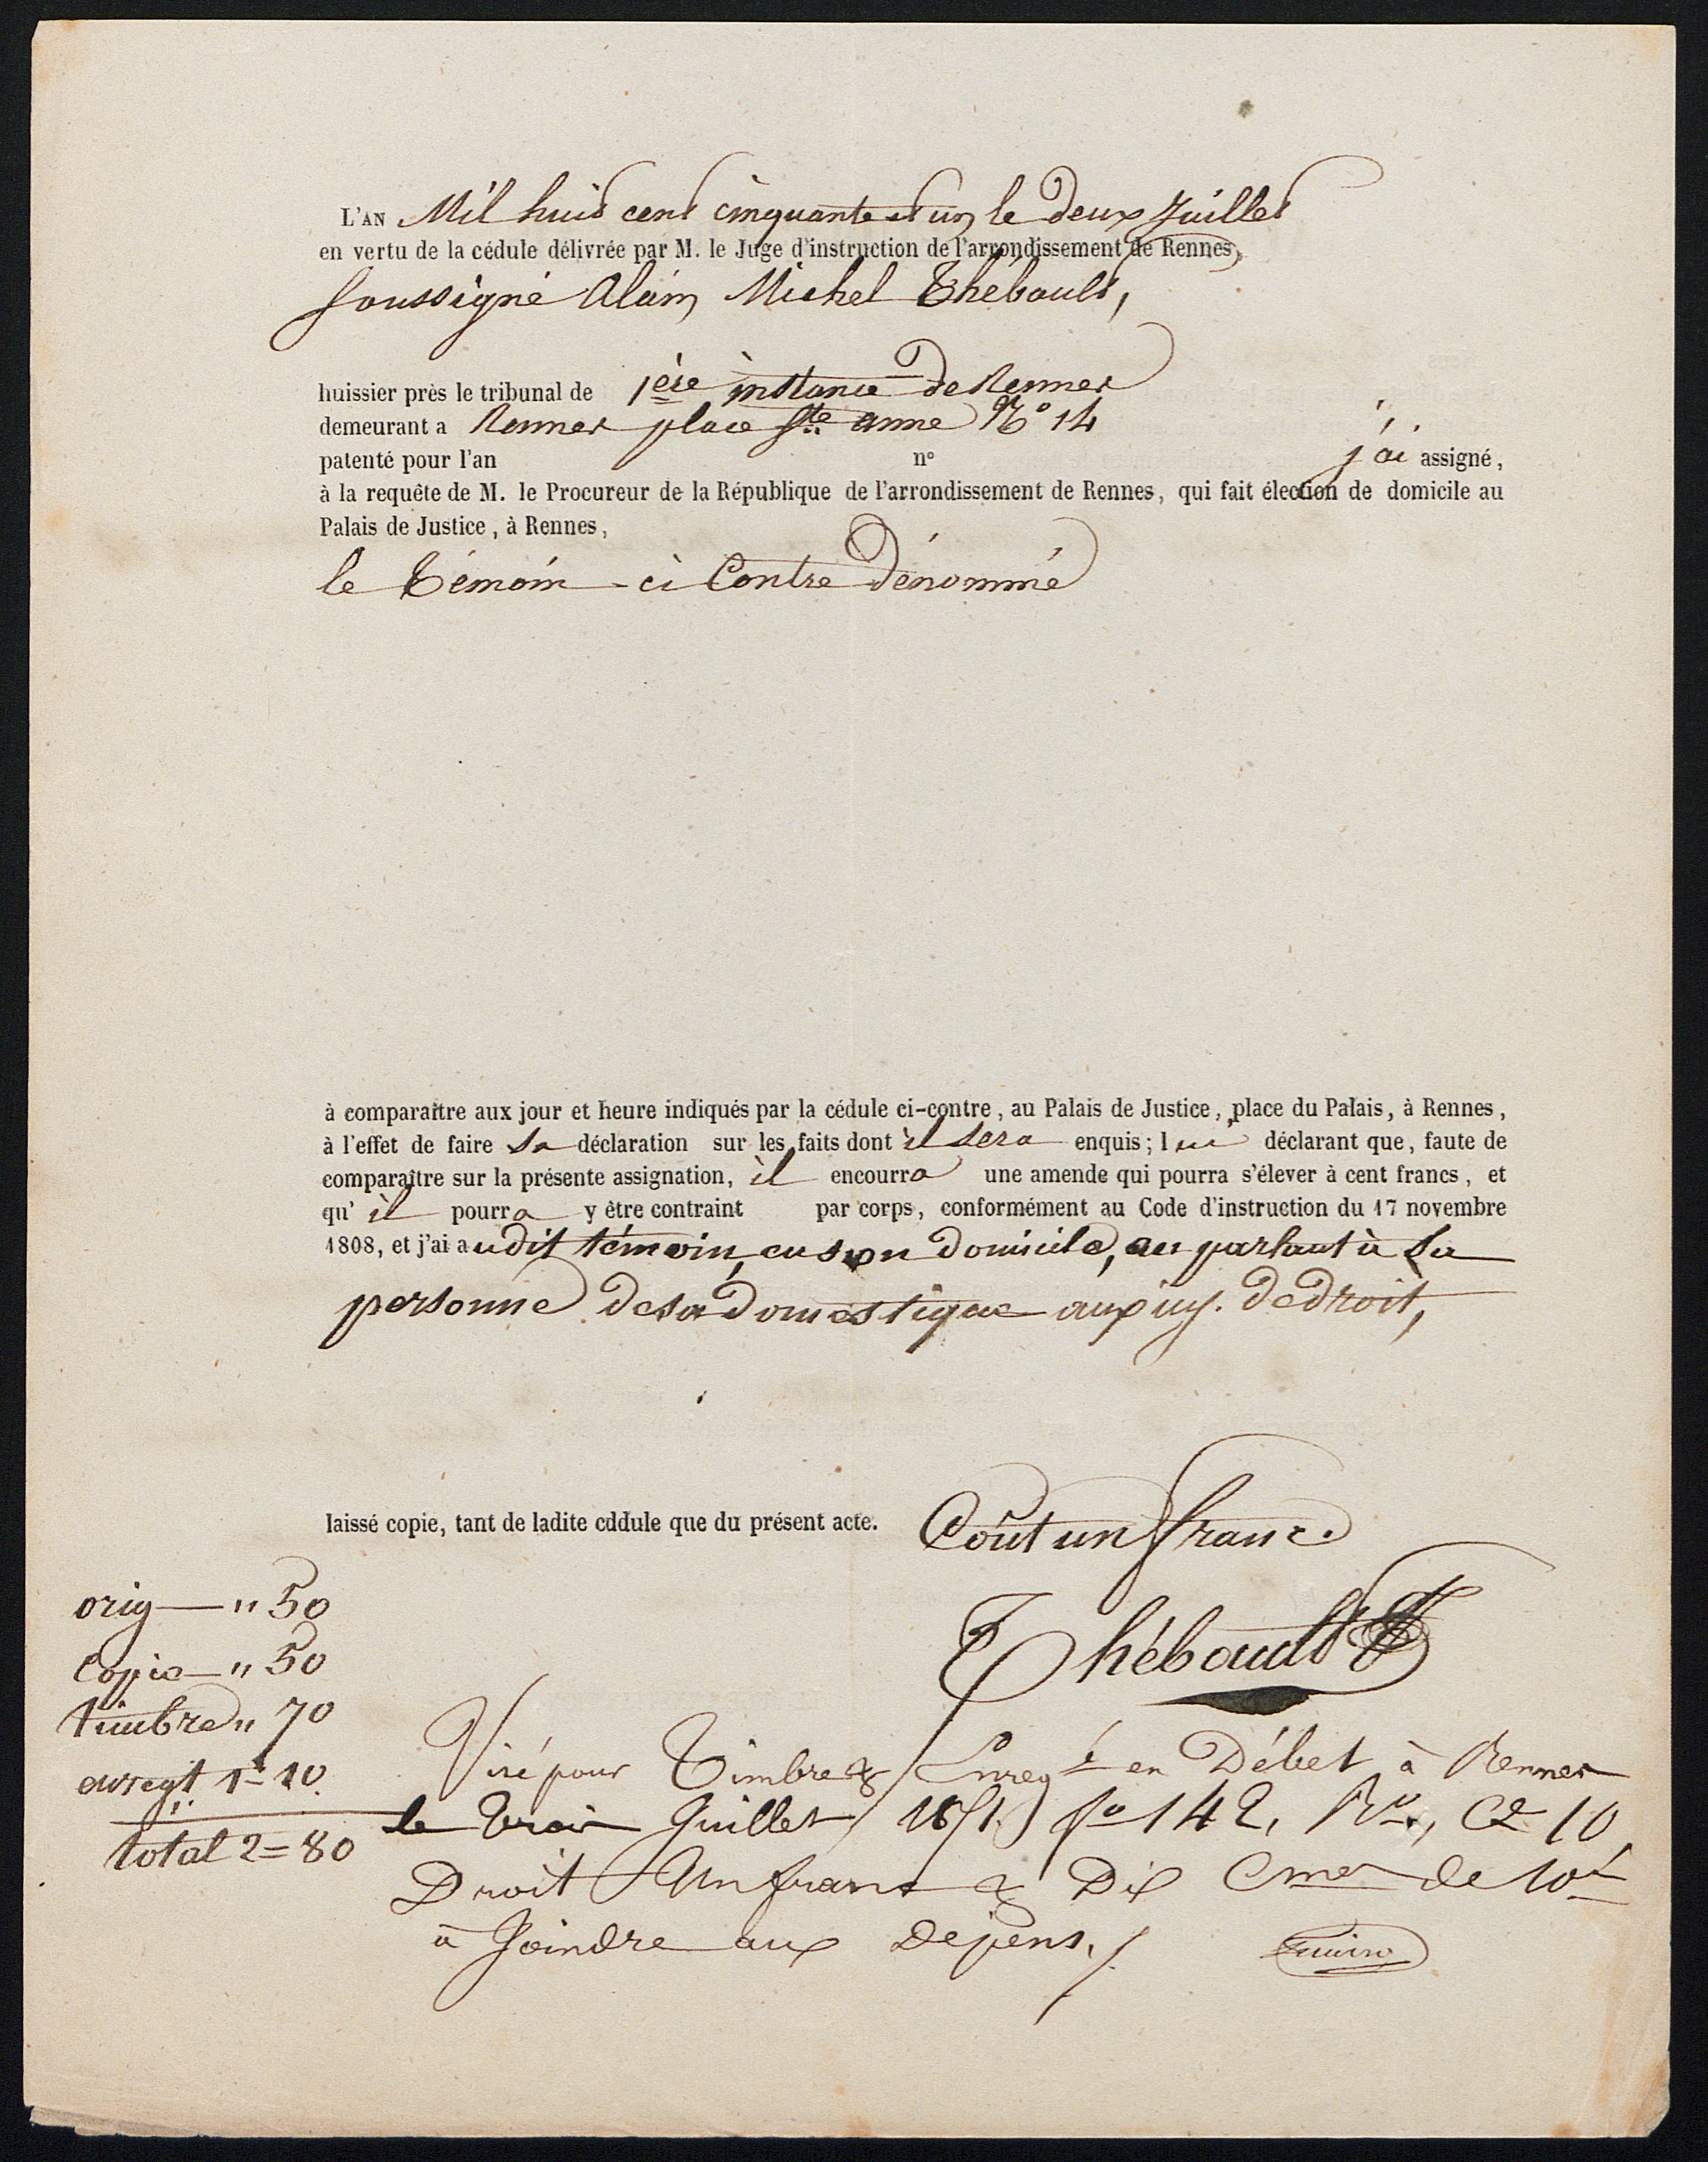 L'AN Mil huit cent cinquante et un, le deux Juillet
en vertu de la cédule délivrée par M. le Juge d'instruction de l'arrondissement de Rennes,
Soussigné Alain Michel Thébault,
huissier près le tribunal de 1ère instance de Rennes
demeurant a Rennes place Ste anne N° 14
patenté pour l'an n° j'ai assigné,
à la requête de M. le Procureur de la République de l'arrondissement de Rennes, qui fait élection de domicile au
Palais de Justice, à Rennes,
le Témoin ci Contre Dénommé
à comparaître aux jour et heure indiqués par la cédule ci-contre, au Palais de Justice, place du Palais, à Rennes,
à l'effet de faire Sa déclaration sur les faits dont il sera enquis; lui déclarant que, faute de
comparaître sur la présente assignation, il encourra une amende qui pourra s'élever à cent francs, et
qu' il pourra y être contraint par corps, conformément au Code d'instruction du 17 novembre
1808, et j'ai audit témoin, en son Domicile, en parlant à la
personne de sa Domestique aux inj. de droit,
laissé copie, tant de ladite cddule que du présent acte.
Coût un franc.
orig — " 50
Thébault
Copie — " 50
timbre " 70
enregt 1 = 10.
total 2 = 80
Visé pour Timbre & Enregé en Débet à Rennes
le trois Juillet 1851. fo 142, Ro, Ce 10,
Droit Un franc & Dix Cmes de 10e
à Joindre aux Dépens./.